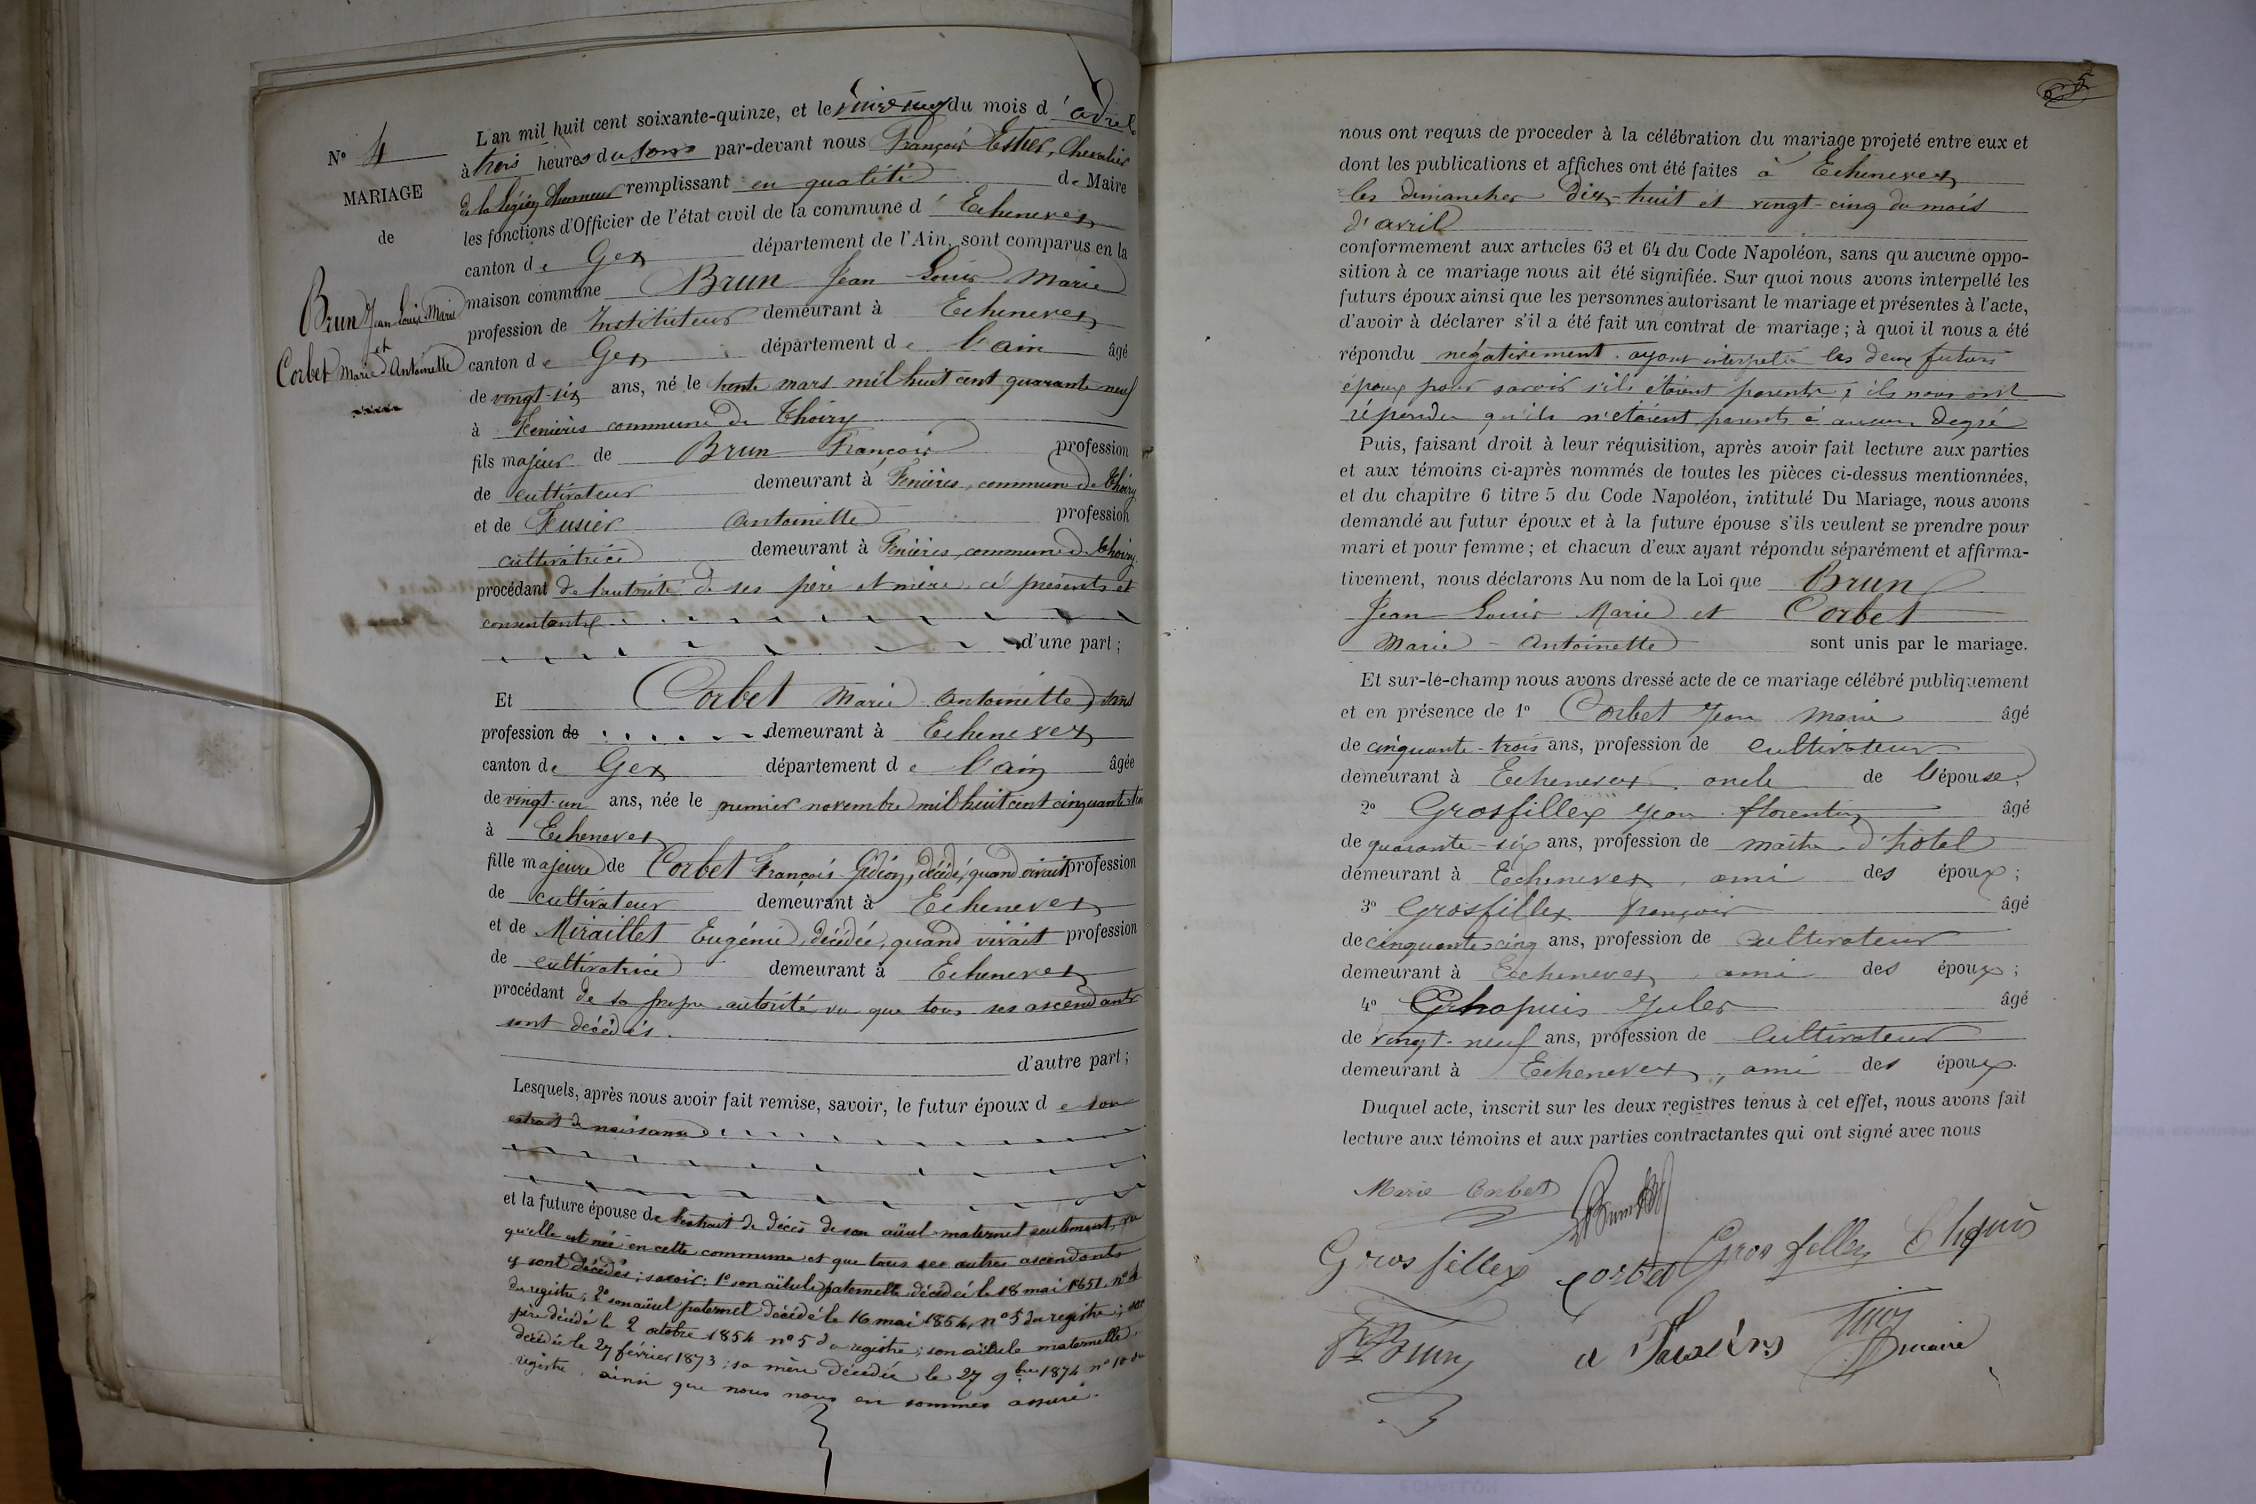 N° 4
MARIAGE
de
Brun Jean Louis Marie
et
Corbet Marie Antoinette
L'an mil huit cent soixante-quinze, et le du mois d'avril
à trois heures du soir par-devant nous François Estier, Chevalier
de la légion d'honneur remplissant en qualité de Maire
les fonctions d'Officier de l'état civil de la commune d'Echenevex
canton de Gex département de l'Ain, sont comparus en la
maison commune Brun Jean Louis Marie
profession de Instituteur demeurant à Echenevex
canton de Gex département de l'ain âgé
de vingt-six ans, né le trente mars mil huit cent quarante neuf
à Fenières commune de Thoiry
fils majeur de Brun François profession
de cultivateur demeurant à Fenières, commune de Thoiry
et de Fusier Antoinette profession
cultivatrice demeurant à Fenières, commune de Thoiry
procédant de l'autorité de ses père et mère ci présents et
consentants
d'une part ;
Et Corbet Marie Antoinette, sans
profession de demeurant à Echenevex
canton de Gex département de l'ain âgée
de vingt-un ans, née le premier novembre mil huit cent cinquante trois
à Echenevex
fille majeure de Corbet François Gédéon, décédé, quand vivait profession
de cultivateur demeurant à Echenevex
et de Miraillet Eugénie, décédée, quand vivait profession
de cultivatrice demeurant à Echenevex
procédant de sa propre autorité vu que tous ses ascendants
sont décédés.
d'autre part ;
Lesquels, après nous avoir fait remise, savoir, le futur époux de son
extrait de naissance
et la future épouse de l'extrait de décès de son aïeul maternel seulement, vu
qu'elle est née en cette commune et que tous ses autres ascendants
y sont décédés ; savoir : 1° son aïeule paternelle décédée le 18 mai 1851, n° 4
du registre ; 2° son aïeul paternel décédé le 16 mai 1854, n° 5 du registre ; son
père décédé le 2 octobre 1854 n° 5 du registre ; son aïeule maternelle
décédée le 27 février 1873 ; sa mère décédée le 27 9bre 1874 n° 10 du
registre, ainsi que nous nous en sommes assuré.
5
nous ont requis de proceder à la célébration du mariage projeté entre eux et
dont les publications et affiches ont été faites à Echenevex
les dimanches Dix-huit et vingt-cinq du mois
d'avril
conformement aux articles 63 et 64 du Code Napoléon, sans qu aucune oppo-
sition à ce mariage nous ait été signifiée. Sur quoi nous avons interpellé les
futurs époux ainsi que les personnes autorisant le mariage et présentes à l'acte,
d'avoir à déclarer s'il a été fait un contrat de mariage ; à quoi il nous a été
répondu négativement. ayant interpelé les deux futurs
époux pour savoir s'ils étaient parents ; ils nous ont
répondu qu'ils n'étaient parents à aucun degré
Puis, faisant droit à leur réquisition, après avoir fait lecture aux parties
et aux témoins ci-après nommés de toutes les pièces ci-dessus mentionnées,
et du chapitre 6 titre 5 du Code Napoléon, intitulé Du Mariage, nous avons
demandé au futur époux et à la future épouse s'ils veulent se prendre pour
mari et pour femme ; et chacun d'eux ayant répondu séparément et affirma-
tivement, nous déclarons Au nom de la Loi que Brun
Jean Louis Marie et Corbet
Marie-Antoinette sont unis par le mariage.
Et sur-le-champ nous avons dressé acte de ce mariage célébré publiquement
et en présence de 1° Corbet Jean Marie âgé
de cinquante-trois ans, profession de cultivateur
demeurant à Echenevex, oncle de l'épouse ;
2° Grosfillex Jean florentin âgé
de quarante-six ans, profession de maître d'hotel
demeurant à Echenevex, ami des époux ;
3° Grosfillex françois âgé
de cinquante-cinq ans, profession de cultivateur
demeurant à Echenevex, ami des époux ;
4° Chapuis Jules âgé
de vingt-neuf ans, profession de cultivateur
demeurant à Echenevex, ami des époux.
Duquel acte, inscrit sur les deux registres tenus à cet effet, nous avons fait
lecture aux témoins et aux parties contractantes qui ont signé avec nous
Marie Corbet
Grosfillex Corbet Grosfillex
Brun
maire